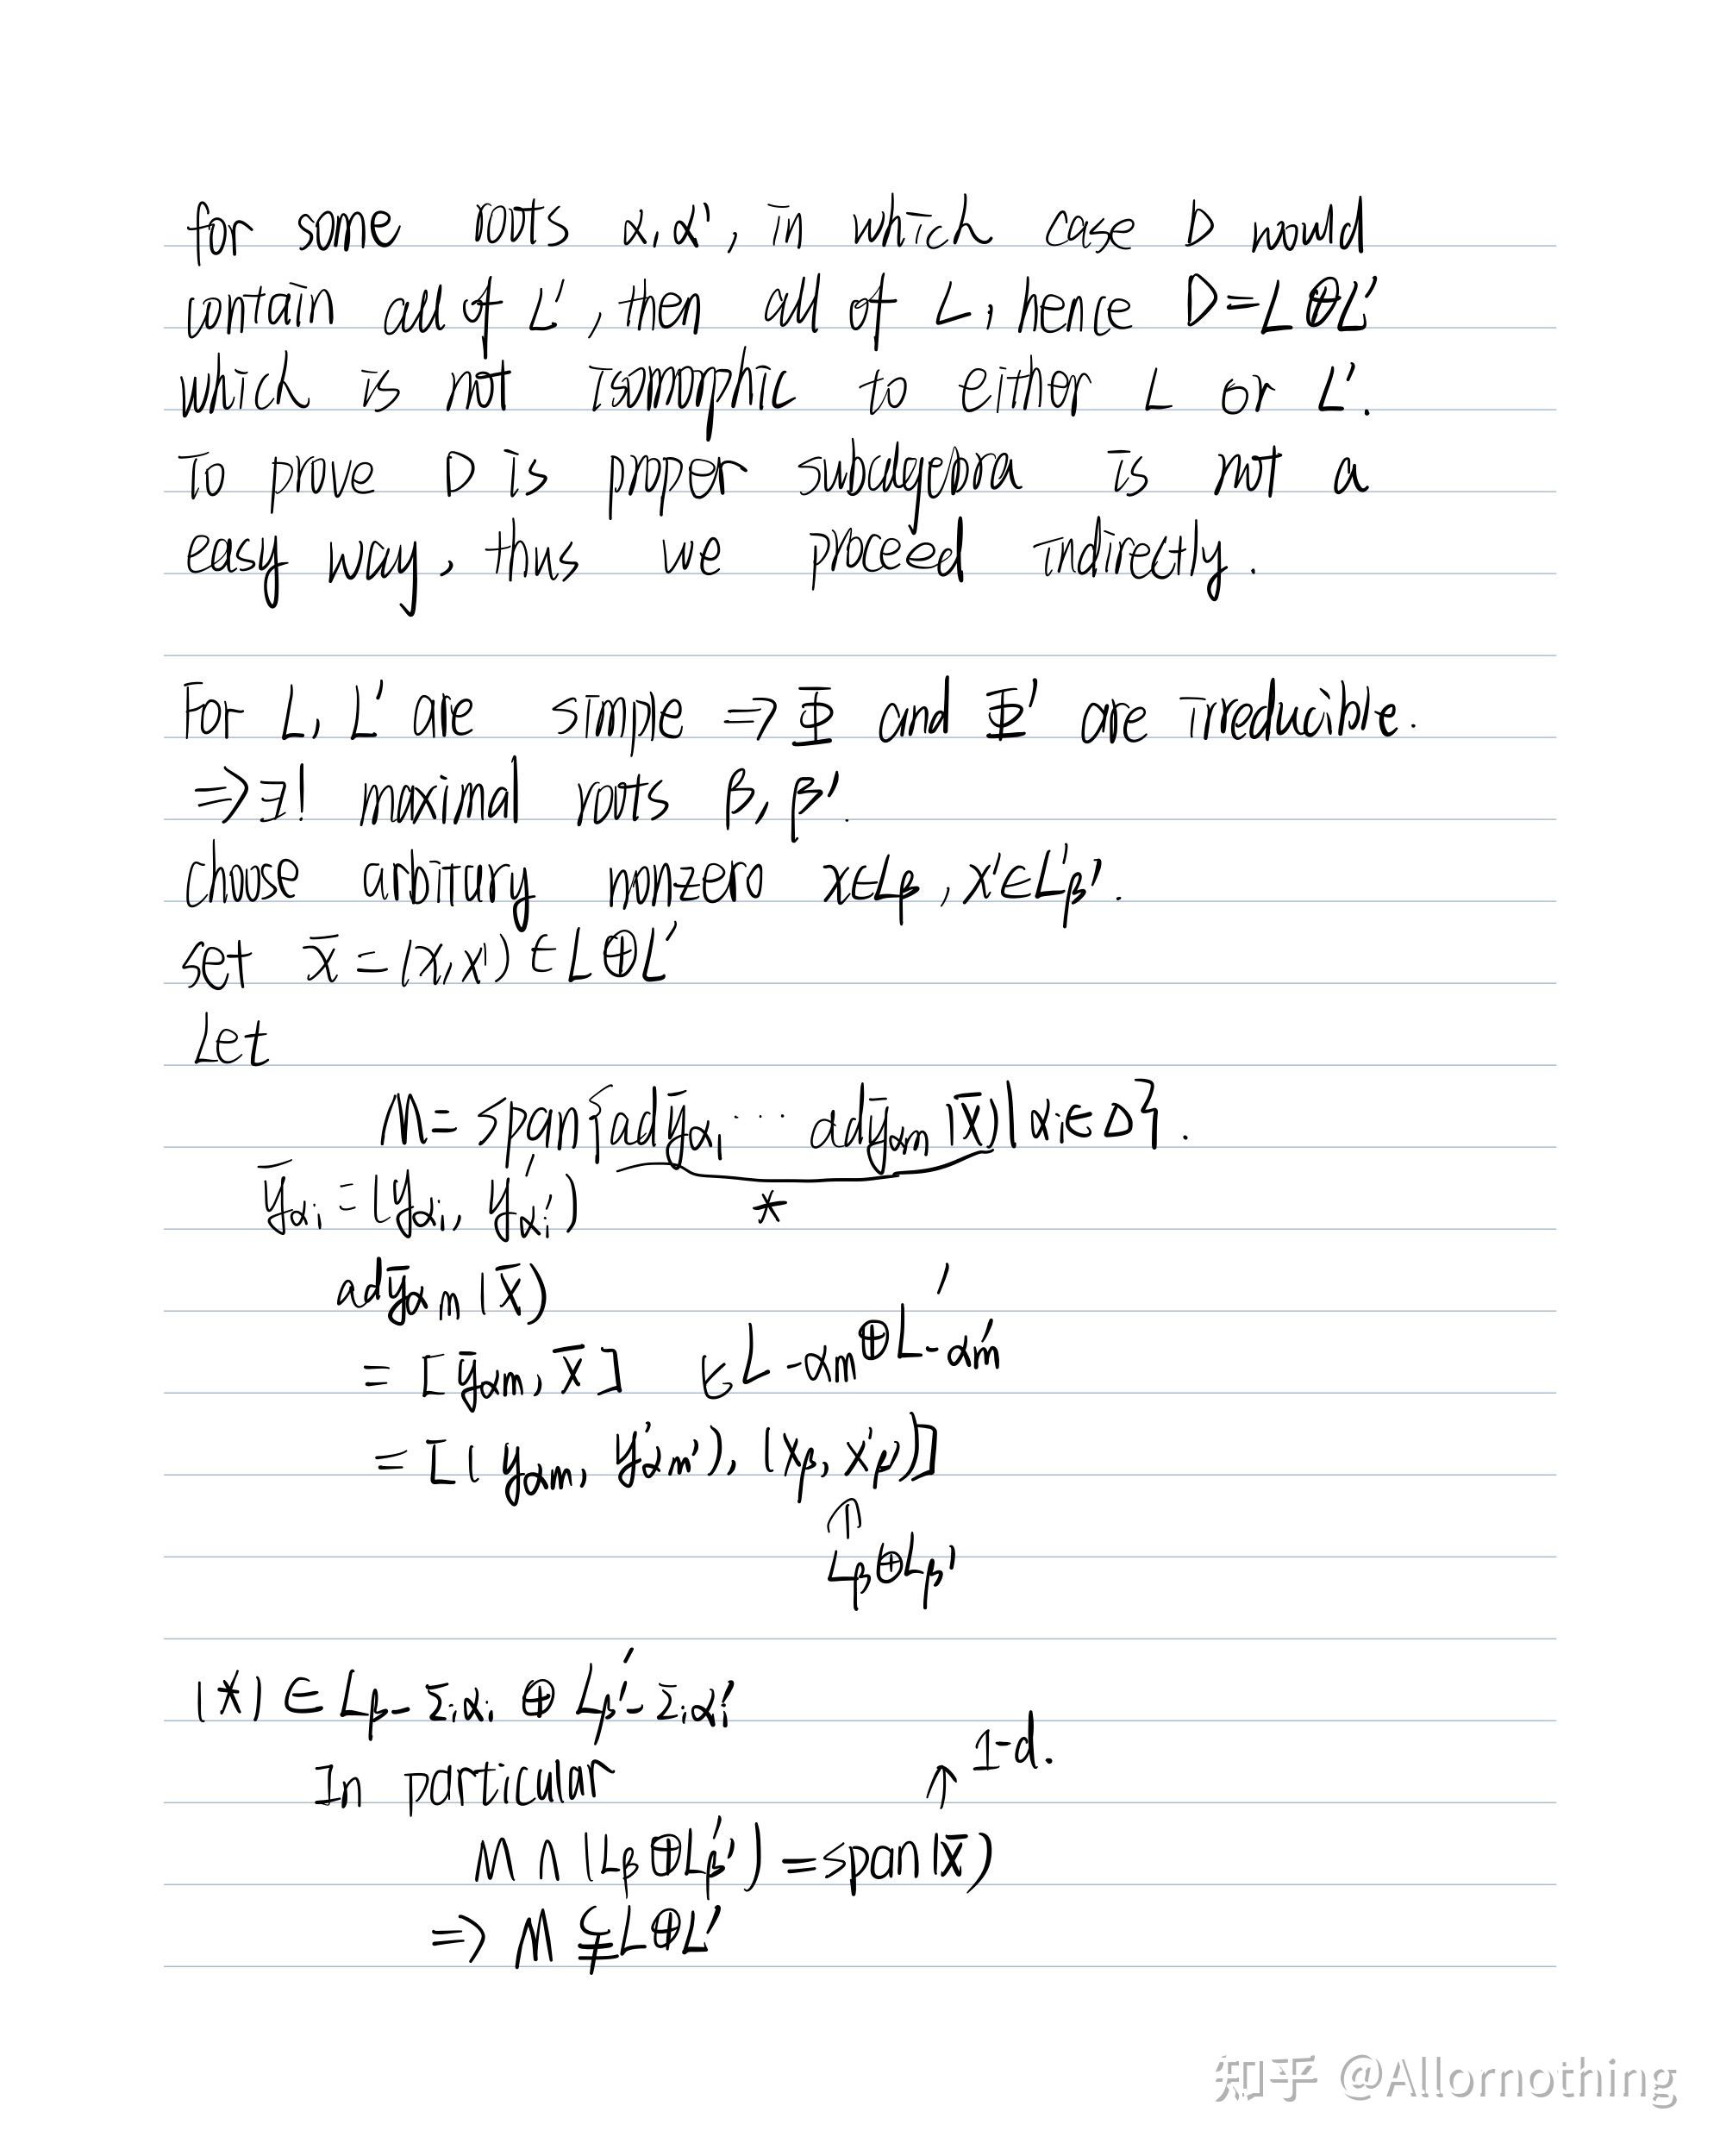 for some roots α, α', in which case D would
contain all of L', then all of L, hence D=L⊕L'
which is not isomorphic to either L or L'.
To prove D is proper subalgebra is not a
easy way, thus we proceed indirectly.
For L, L' are simple ⇒ Φ and Φ' are irreducible.
⇒∃! maximal roots β, β'.
choose arbitary nonzero x∈Lβ, x'∈L'β'.
set x̄ = (x, x') ∈ L⊕L'
Let
M = span{ad ȳα1 ··· ad ȳαm (x̄) | αi∈Δ}.
ȳαi = (yαi, y'α'i)
*
ad ȳαm (x̄)
= [ȳαm, x̄] ∈ L-αm ⊕ L'-α'm
= [(yαm, y'αm'), (xβ, x'β')]
↑
Lβ⊕Lβ'
(*) ∈ Lβ-Σiαi ⊕ L'β'-Σiαi'
1-d.
In particular ↑
M ∩ (Lβ⊕L'β') = span(x̄)
⇒ M ⊊ L⊕L'
知乎 @Allornothing